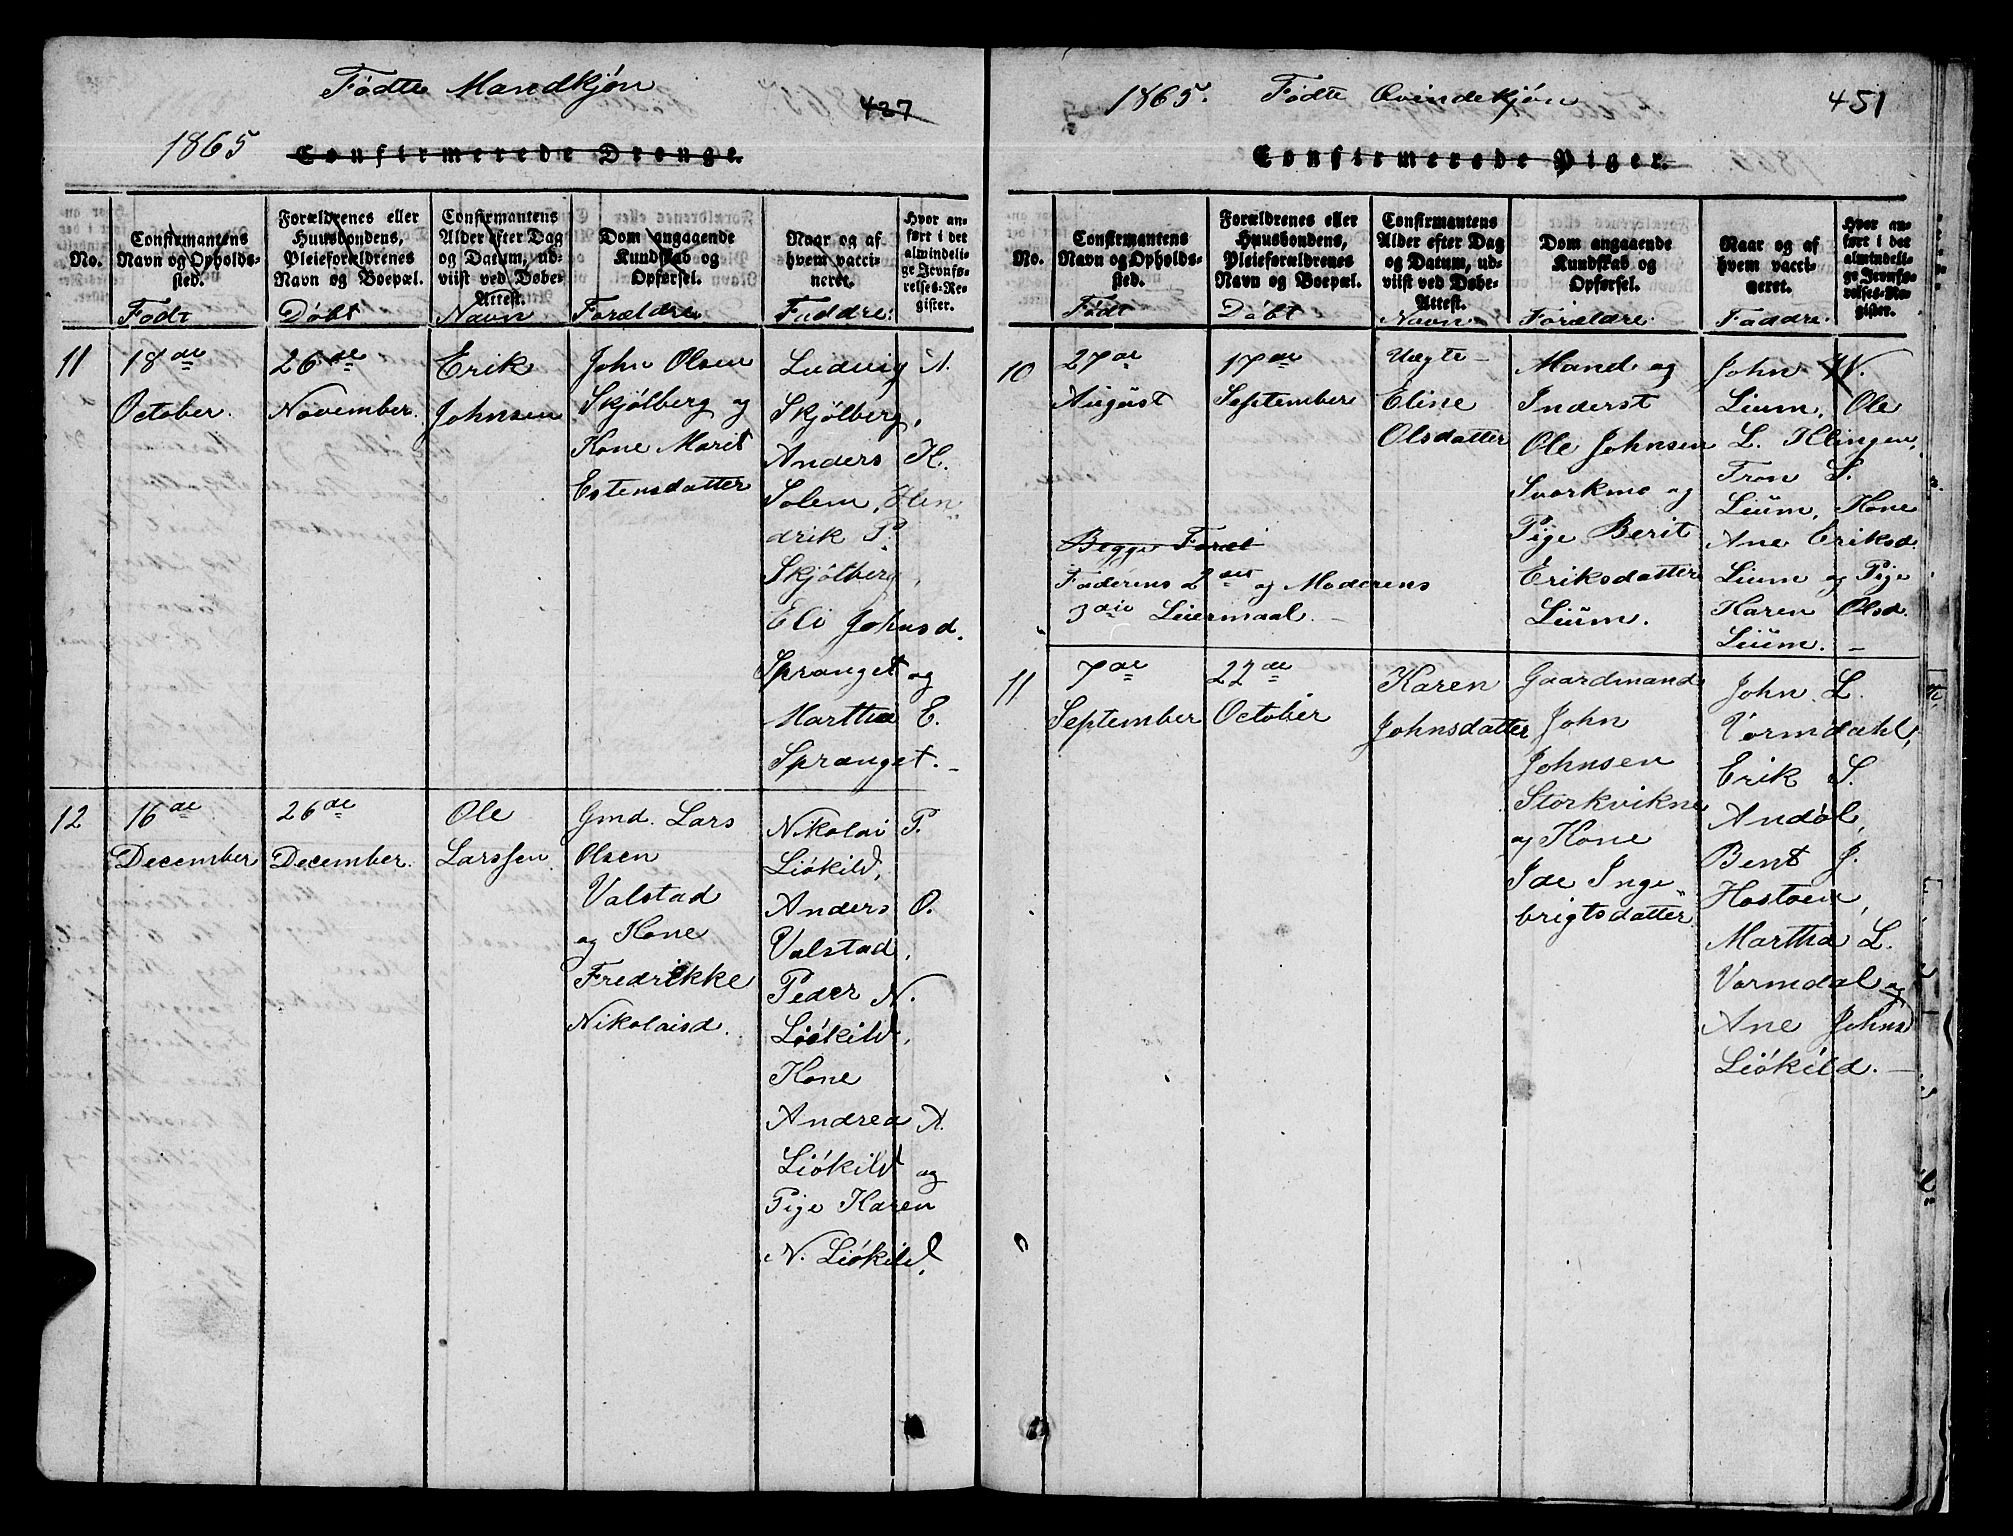 Fødte Mandkjøn
427
1865
Confirmerede Drenge.
No.
Confirmantens
Navn og Opholds-
sted.
Født
Forældrenes eller
Huusbondens,
Pleieforældrenes
Navn og Boepæl.
Døbt
Confirmantens
Alder efter Dag
og Datum, ud-
viist ved Døbe-
Attest.
Navn
Dom angaaende
Kundskab og
Opførsel.
Forældre
Naar og af
hvem vacci-
neret.
Faddre.
Hvor an-
ført i det
almindeli-
ge Jevnfø-
relses-Re-
gister.
11
18de
October.
26de
November.
Erik
Johnsen
John Olsen
Skjølberg og
Kone Maret
Estensdatter
Ludvig A.
Skjølberg,
Anders H.
Solem, Hen-
drik P.
Skjølberg,
Eli Johnsd.
Spranget og
Martha E.
Spranget.
12
16de
December
26de
December.
Ole
Larssen
Gmd. Lars
Olsen
Valstad
og Kone
Fredrikke
Nikolaisd.
Nikolai P.
Liøkild,
Anders O.
Valstad,
Peder N.
Liøkild,
Kone
Andrea A.
Liøkild og
Pige Karen
N. Liøkild.
1865. Fødte Qvindekjøn
451
Confirmerede Piger.
No.
Confirmantens
Navn og Opholds-
sted.
Født
Forældrenes eller
Huusbondens,
Pleieforældrenes
Navn og Boepæl.
Døbt
Confirmantens
Alder efter Dag
og Datum, ud-
viist ved Døbe-
Attest.
Navn
Dom angaaende
Kundskab og
Opførsel.
Forældre.
Naar og af
hvem vacci-
neret.
Faddre.
Hvor an-
ført i det
almindeli-
ge Jevnfø-
relses-Re-
gister.
10
27de
August
17de
September
Uægte
Eline
Olsdatter
Mand og
Inderst
Ole Johnsen
Svorkmo og
Pige Berit
Eriksdatter
Lium.
John
Lium, Ole
L. Klingen,
Tron S.
Lium, Kone
Ane Eriksd.
Lium og Pige
Karen Olsd.
Lium.
Begge Foræl
Faderens 2det og Moderens
3die Leiermaal.
11
7de
September
22de
October
Karen
Johnsdatter
Gaardmand
John
Johnsen
Storkvikne
og Kone
Ide Inge-
brigtsdatter
John L.
Vormdahl,
Erik S.
Andøl,
Bent J.
Hostoen,
Martha L.
Vormdal og
Ane Johns
Liøkild.